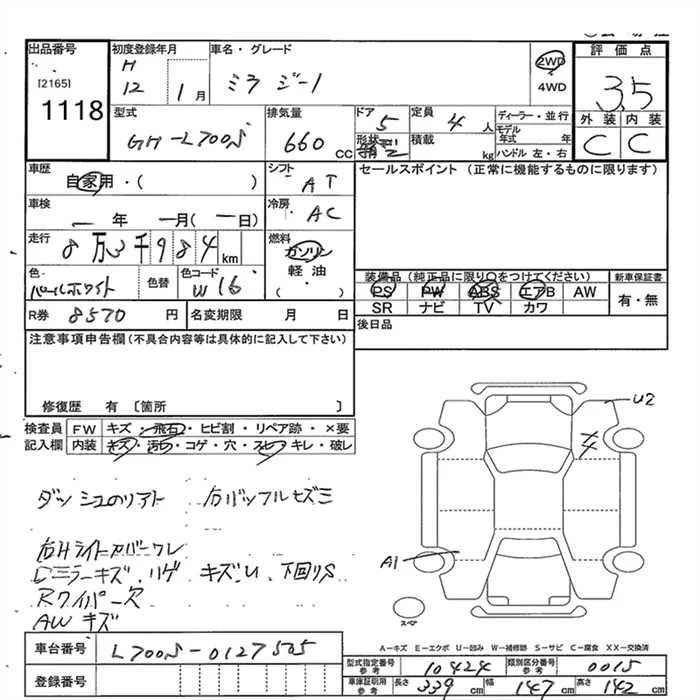 出品番号 初度登録年月 車名・グレード 評価点
[2165] H 12 1月 ミラ ジーノ 2WD 4WD 3.5
1118
型式 排気量 ドア 定員 ディーラー・並行 外装 内装
GH-L700S 660 CC 5 4人 モデル年式 年 C C
形状 積載 kg ハンドル 左・右
車歴 シフト セールスポイント (正常に機能するものに限ります)
自家用・( ) AT
車検 冷房
年 月( 日) AC
走行 燃料
8万3千984km ガソリン
軽油
( )
色 色替 色コード 装備品(純正品に限り○をつけてください) 新車保証書
パールホワイト W16 PS PW ABS エアB AW 有・無
SR ナビ TV カワ
R券 8570円 名変期限 月 日 後日品
注意事項申告欄(不具合内容等は具体的に記入して下さい)
修復歴 有 〔箇所 〕
検査員 FW キズ・飛石・ヒビ割・リペア跡・×要
記入欄 内装 キズ・汚れ・コゲ・穴・スレ・キレ・破レ
U2
A1
右Hライトカバーワレ
キズU 下回りS
Rワイパー欠
AW キズ
スペア
A-キズ E-エクボ U-凹み W-補修跡 S-サビ C-腐食 XX-交換済
車台番号 L700S-0127505
登録番号
型式指定番号 参考 10424 類別区分番号 参考 0015
車庫証明用 参考 長さ 339cm 幅 147cm 高さ 142cm